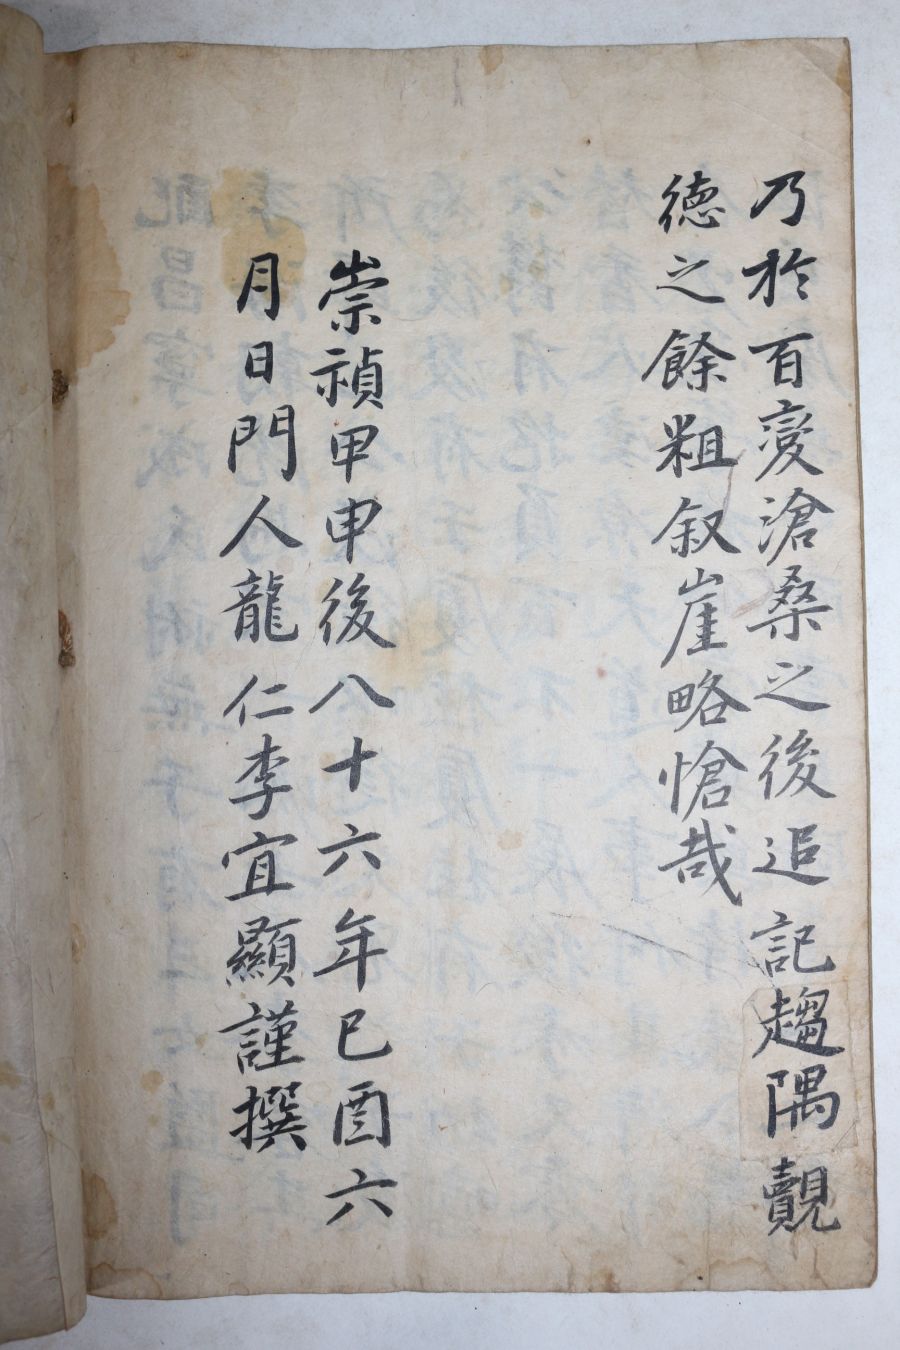 乃於百變滄桑之後追記趨隅覿
德之餘粗叙崖略愴哉
崇禎甲申後八十六年己酉六
月日門人龍仁李宜顯謹撰